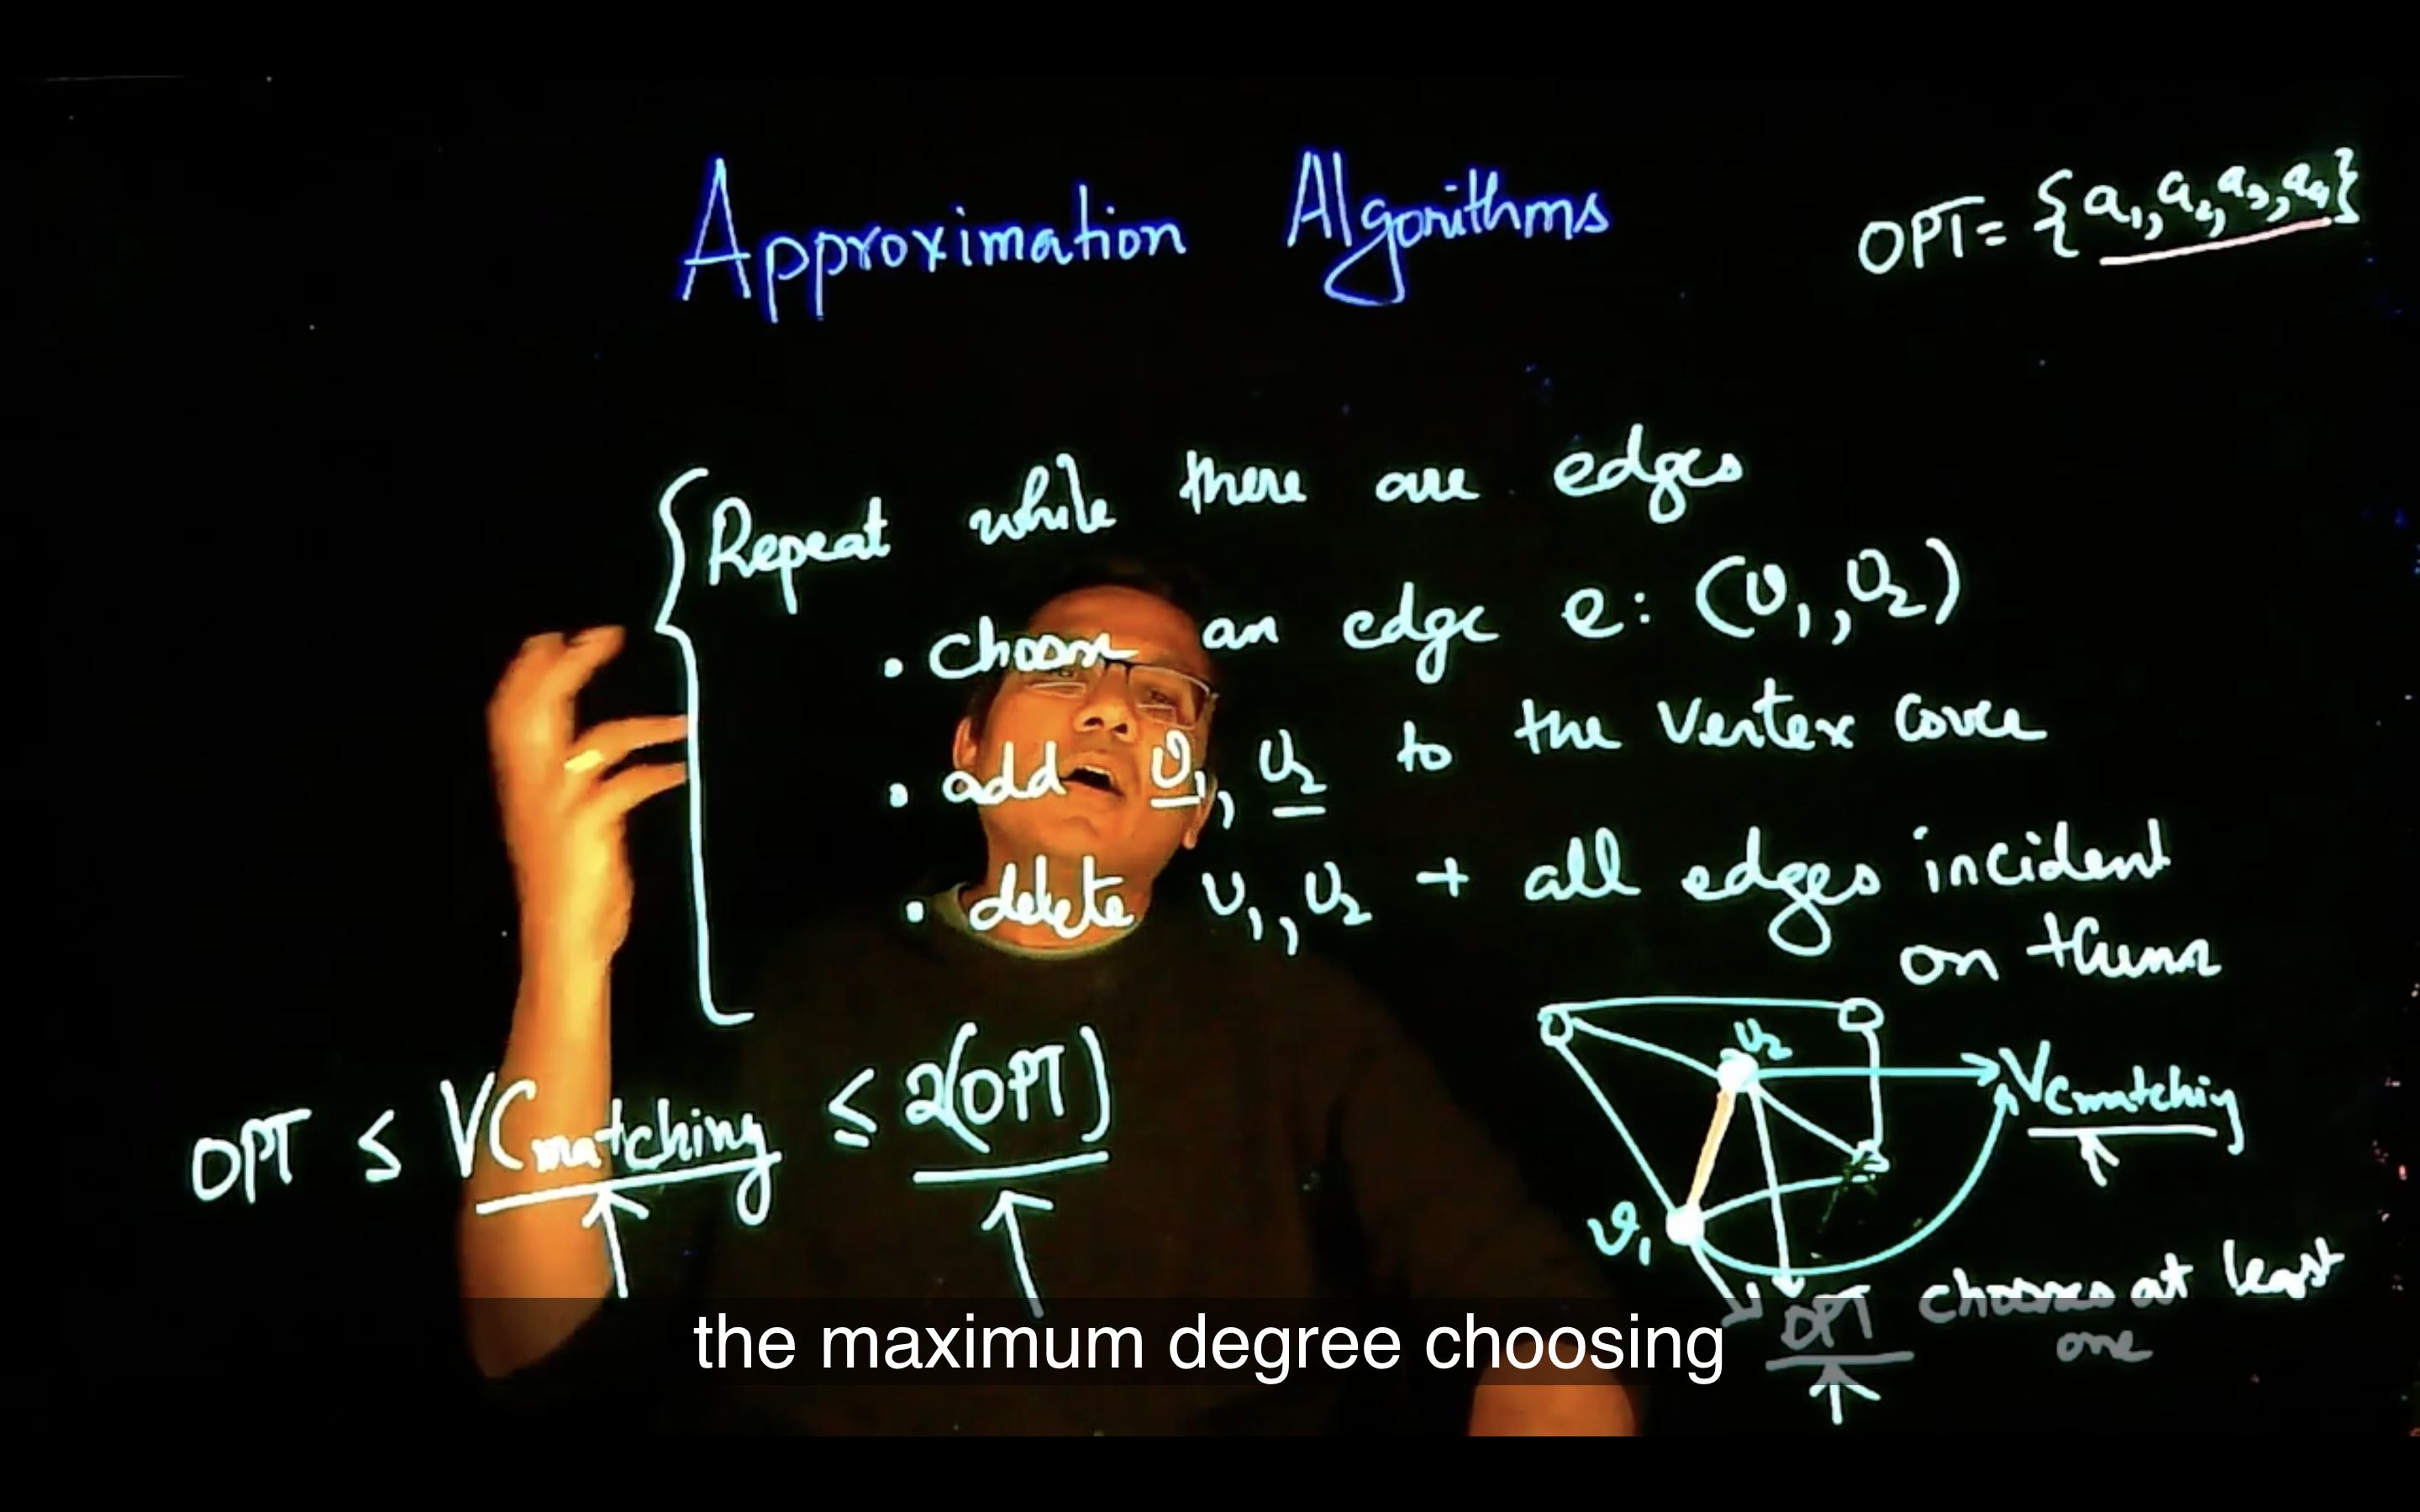 Approximation Algorithms
OPT = {a₁, a₂, a₃, a₄}
Repeat while there are edges
• choose an edge e: (v₁, v₂)
• add v₁, v₂ to the Vertex cover
• delete v₁, v₂ + all edges incident
on them
OPT ≤ VC matching ≤ 2(OPT)
v₂
VC matching
v₁
OPT chooses at least
one
the maximum degree choosing